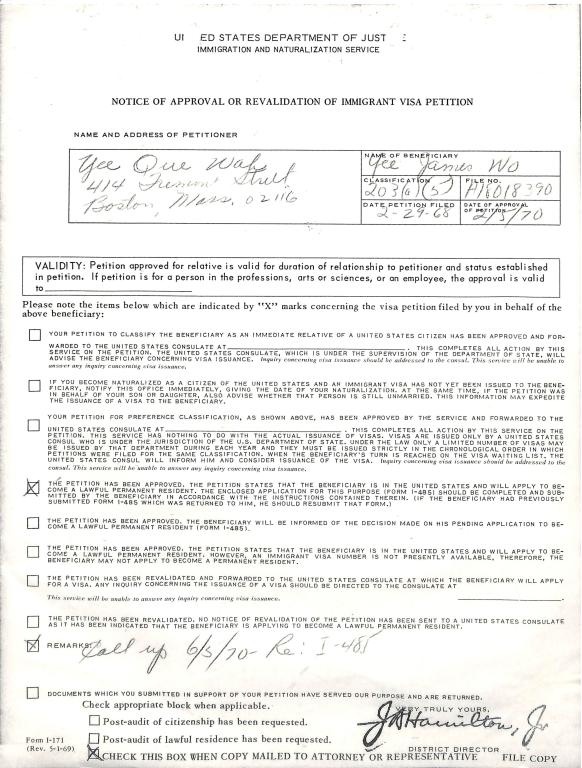 UNITED STATES DEPARTMENT OF JUST
IMMIGRATION AND NATURALIZATION SERVICE
NOTICE OF APPROVAL OR REVALIDATION OF IMMIGRANT VISA PETITION
NAME AND ADDRESS OF PETITIONER
Yee Que Wah
414 Street
Boston, Mass. 02116
NAME OF BENEFICIARY
Yee James Wo
CLASSIFICATION
203(a)(5)
FILE NO.
A18018390
DATE PETITION FILED
2-29-68
DATE OF APPROVAL OF PETITION
2/3/70
VALIDITY: Petition approved for relative is valid for duration of relationship to petitioner and status established
in petition. If petition is for a person in the professions, arts or sciences, or an employee, the approval is valid
to
Please note the items below which are indicated by "X" marks concerning the visa petition filed by you in behalf of the
above beneficiary:
YOUR PETITION TO CLASSIFY THE BENEFICIARY AS AN IMMEDIATE RELATIVE OF A UNITED STATES CITIZEN HAS BEEN APPROVED AND FOR-
WARDED TO THE UNITED STATES CONSULATE AT . THIS COMPLETES ALL ACTION BY THIS
SERVICE ON THE PETITION. THE UNITED STATES CONSULATE, WHICH IS UNDER THE SUPERVISION OF THE DEPARTMENT OF STATE, WILL
ADVISE THE BENEFICIARY CONCERNING VISA ISSUANCE. Inquiry concerning visa issuance should be addressed to the consul. This service will be unable to
answer any inquiry concerning visa issuance.
IF YOU BECOME NATURALIZED AS A CITIZEN OF THE UNITED STATES AND AN IMMIGRANT VISA HAS NOT YET BEEN ISSUED TO THE BENE-
FICIARY, NOTIFY THIS OFFICE IMMEDIATELY, GIVING THE DATE OF YOUR NATURALIZATION. AT THE SAME TIME, IF THE PETITION WAS
IN BEHALF OF YOUR SON OR DAUGHTER, ALSO ADVISE WHETHER THAT PERSON IS STILL UNMARRIED. THIS INFORMATION MAY EXPEDITE
THE ISSUANCE OF A VISA TO THE BENEFICIARY.
YOUR PETITION FOR PREFERENCE CLASSIFICATION, AS SHOWN ABOVE, HAS BEEN APPROVED BY THE SERVICE AND FORWARDED TO THE
UNITED STATES CONSULATE AT . THIS COMPLETES ALL ACTION BY THIS SERVICE ON THE
PETITION. THIS SERVICE HAS NOTHING TO DO WITH THE ACTUAL ISSUANCE OF VISAS. VISAS ARE ISSUED ONLY BY A UNITED STATES
CONSUL WHO IS UNDER THE JURISDICTION OF THE U.S. DEPARTMENT OF STATE. UNDER THE LAW ONLY A LIMITED NUMBER OF VISAS MAY
BE ISSUED BY THAT DEPARTMENT DURING EACH YEAR AND THEY MUST BE ISSUED STRICTLY IN THE CHRONOLOGICAL ORDER IN WHICH
PETITIONS WERE FILED FOR THE SAME CLASSIFICATION. WHEN THE BENEFICIARY'S TURN IS REACHED ON THE VISA WAITING LIST, THE
UNITED STATES CONSUL WILL INFORM HIM AND CONSIDER ISSUANCE OF THE VISA. Inquiry concerning visa issuance should be addressed to the
consul. This service will be unable to answer any inquiry concerning visa issuance.
THE PETITION HAS BEEN APPROVED. THE PETITION STATES THAT THE BENEFICIARY IS IN THE UNITED STATES AND WILL APPLY TO BE-
COME A LAWFUL PERMANENT RESIDENT. THE ENCLOSED APPLICATION FOR THIS PURPOSE (FORM I-485) SHOULD BE COMPLETED AND SUB-
MITTED BY THE BENEFICIARY IN ACCORDANCE WITH THE INSTRUCTIONS CONTAINED THEREIN. (IF THE BENEFICIARY HAD PREVIOUSLY
SUBMITTED FORM I-485 WHICH WAS RETURNED TO HIM, HE SHOULD RESUBMIT THAT FORM.)
THE PETITION HAS BEEN APPROVED. THE BENEFICIARY WILL BE INFORMED OF THE DECISION MADE ON HIS PENDING APPLICATION TO BE-
COME A LAWFUL PERMANENT RESIDENT (FORM I-485).
THE PETITION HAS BEEN APPROVED. THE PETITION STATES THAT THE BENEFICIARY IS IN THE UNITED STATES AND WILL APPLY TO BE-
COME A LAWFUL PERMANENT RESIDENT. HOWEVER, AN IMMIGRANT VISA NUMBER IS NOT PRESENTLY AVAILABLE, THEREFORE, THE
BENEFICIARY MAY NOT APPLY TO BECOME A PERMANENT RESIDENT.
THE PETITION HAS BEEN REVALIDATED AND FORWARDED TO THE UNITED STATES CONSULATE AT WHICH THE BENEFICIARY WILL APPLY
FOR A VISA. ANY INQUIRY CONCERNING THE ISSUANCE OF A VISA SHOULD BE DIRECTED TO THE CONSULATE AT
This service will be unable to answer any inquiry concerning visa issuance.
THE PETITION HAS BEEN REVALIDATED. NO NOTICE OF REVALIDATION OF THE PETITION HAS BEEN SENT TO A UNITED STATES CONSULATE
AS IT HAS BEEN INDICATED THAT THE BENEFICIARY IS APPLYING TO BECOME A LAWFUL PERMANENT RESIDENT.
REMARKS: Call up 6/3/70- Re: I-485
DOCUMENTS WHICH YOU SUBMITTED IN SUPPORT OF YOUR PETITION HAVE SERVED OUR PURPOSE AND ARE RETURNED.
Check appropriate block when applicable.
VERY TRULY YOURS,
Post-audit of citizenship has been requested.
J Hamilton, Jr
Post-audit of lawful residence has been requested.
DISTRICT DIRECTOR
Form I-171
(Rev. 5-1-69)
CHECK THIS BOX WHEN COPY MAILED TO ATTORNEY OR REPRESENTATIVE FILE COPY